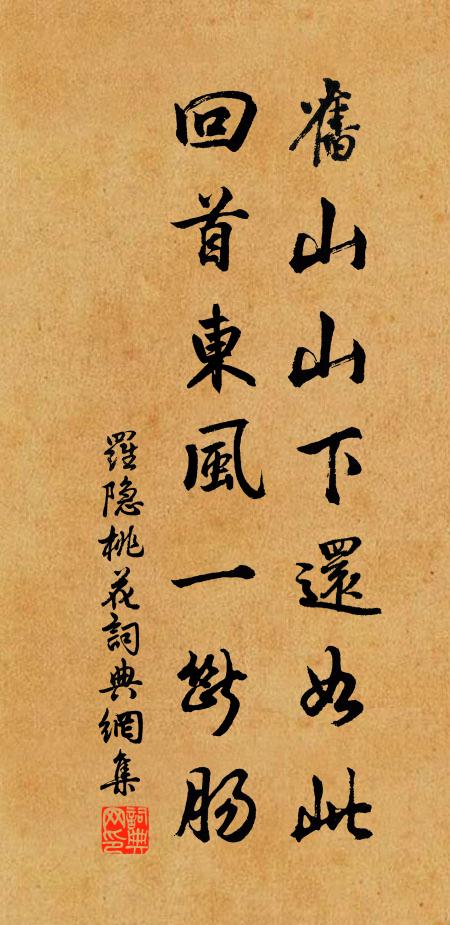 舊山山下還如此
回首東風一斷腸
羅隐桃花詞典網集
詞典网印